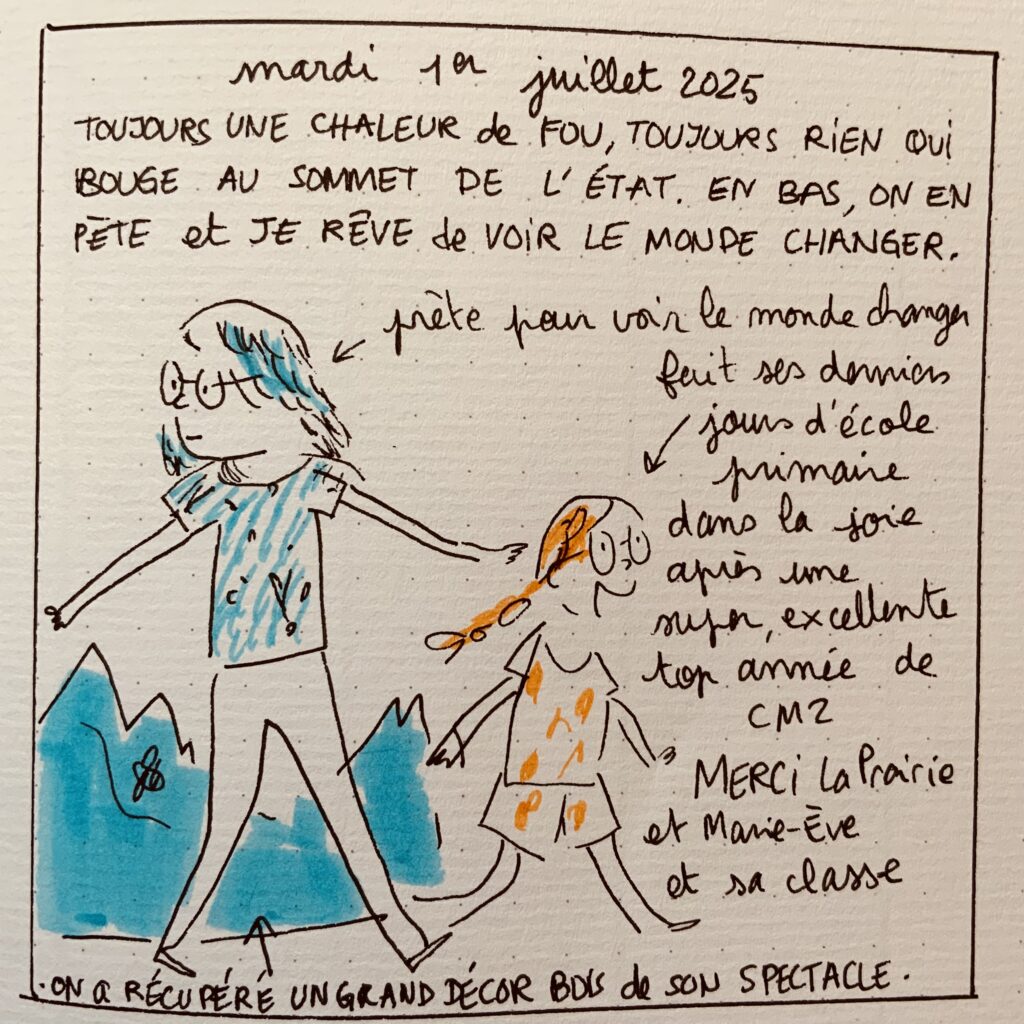 mardi 1er juillet 2025
TOUJOURS UNE CHALEUR de FOU, TOUJOURS RIEN QUI
BOUGE AU SOMMET DE L'ÉTAT. EN BAS, ON EN
PÈTE et JE RÊVE de VOIR LE MONDE CHANGER.
prète pour voir le monde changer
fait ses derniers
jours d'école
primaire
dans la joie
après une
super, excellente
top année de
CM2
MERCI La Prairie
et Marie-Ève
et sa classe
.ON a RÉCUPÉRÉ UN GRAND DÉCOR BOIS de SON SPECTACLE.